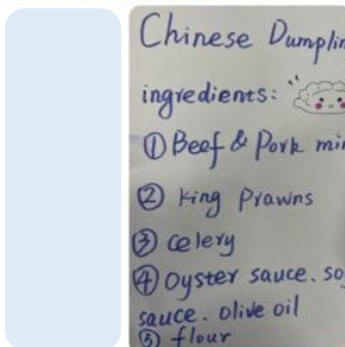 Chinese Dumplin
ingredients:
① Beef & Pork min
② King Prawns
③ Celery
④ Oyster sauce. so
sauce. Olive oil
⑤ flour